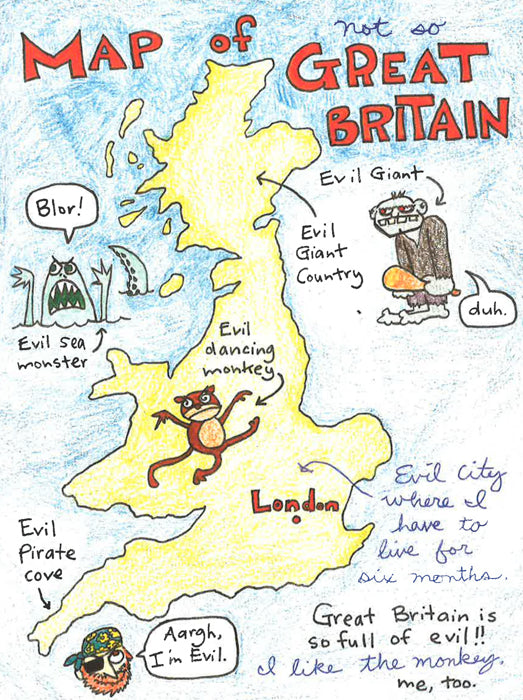 not so
MAP of GREAT
BRITAIN
Evil Giant
Blor!
Evil
Giant
Country
duh.
Evil sea
monster
Evil
dancing
monkey
Evil City
where I
have to
live for
six months.
London
Evil
Pirate
cove
Aargh,
I'm Evil.
Great Britain is
so full of evil!!
I like the monkey.
me, too.